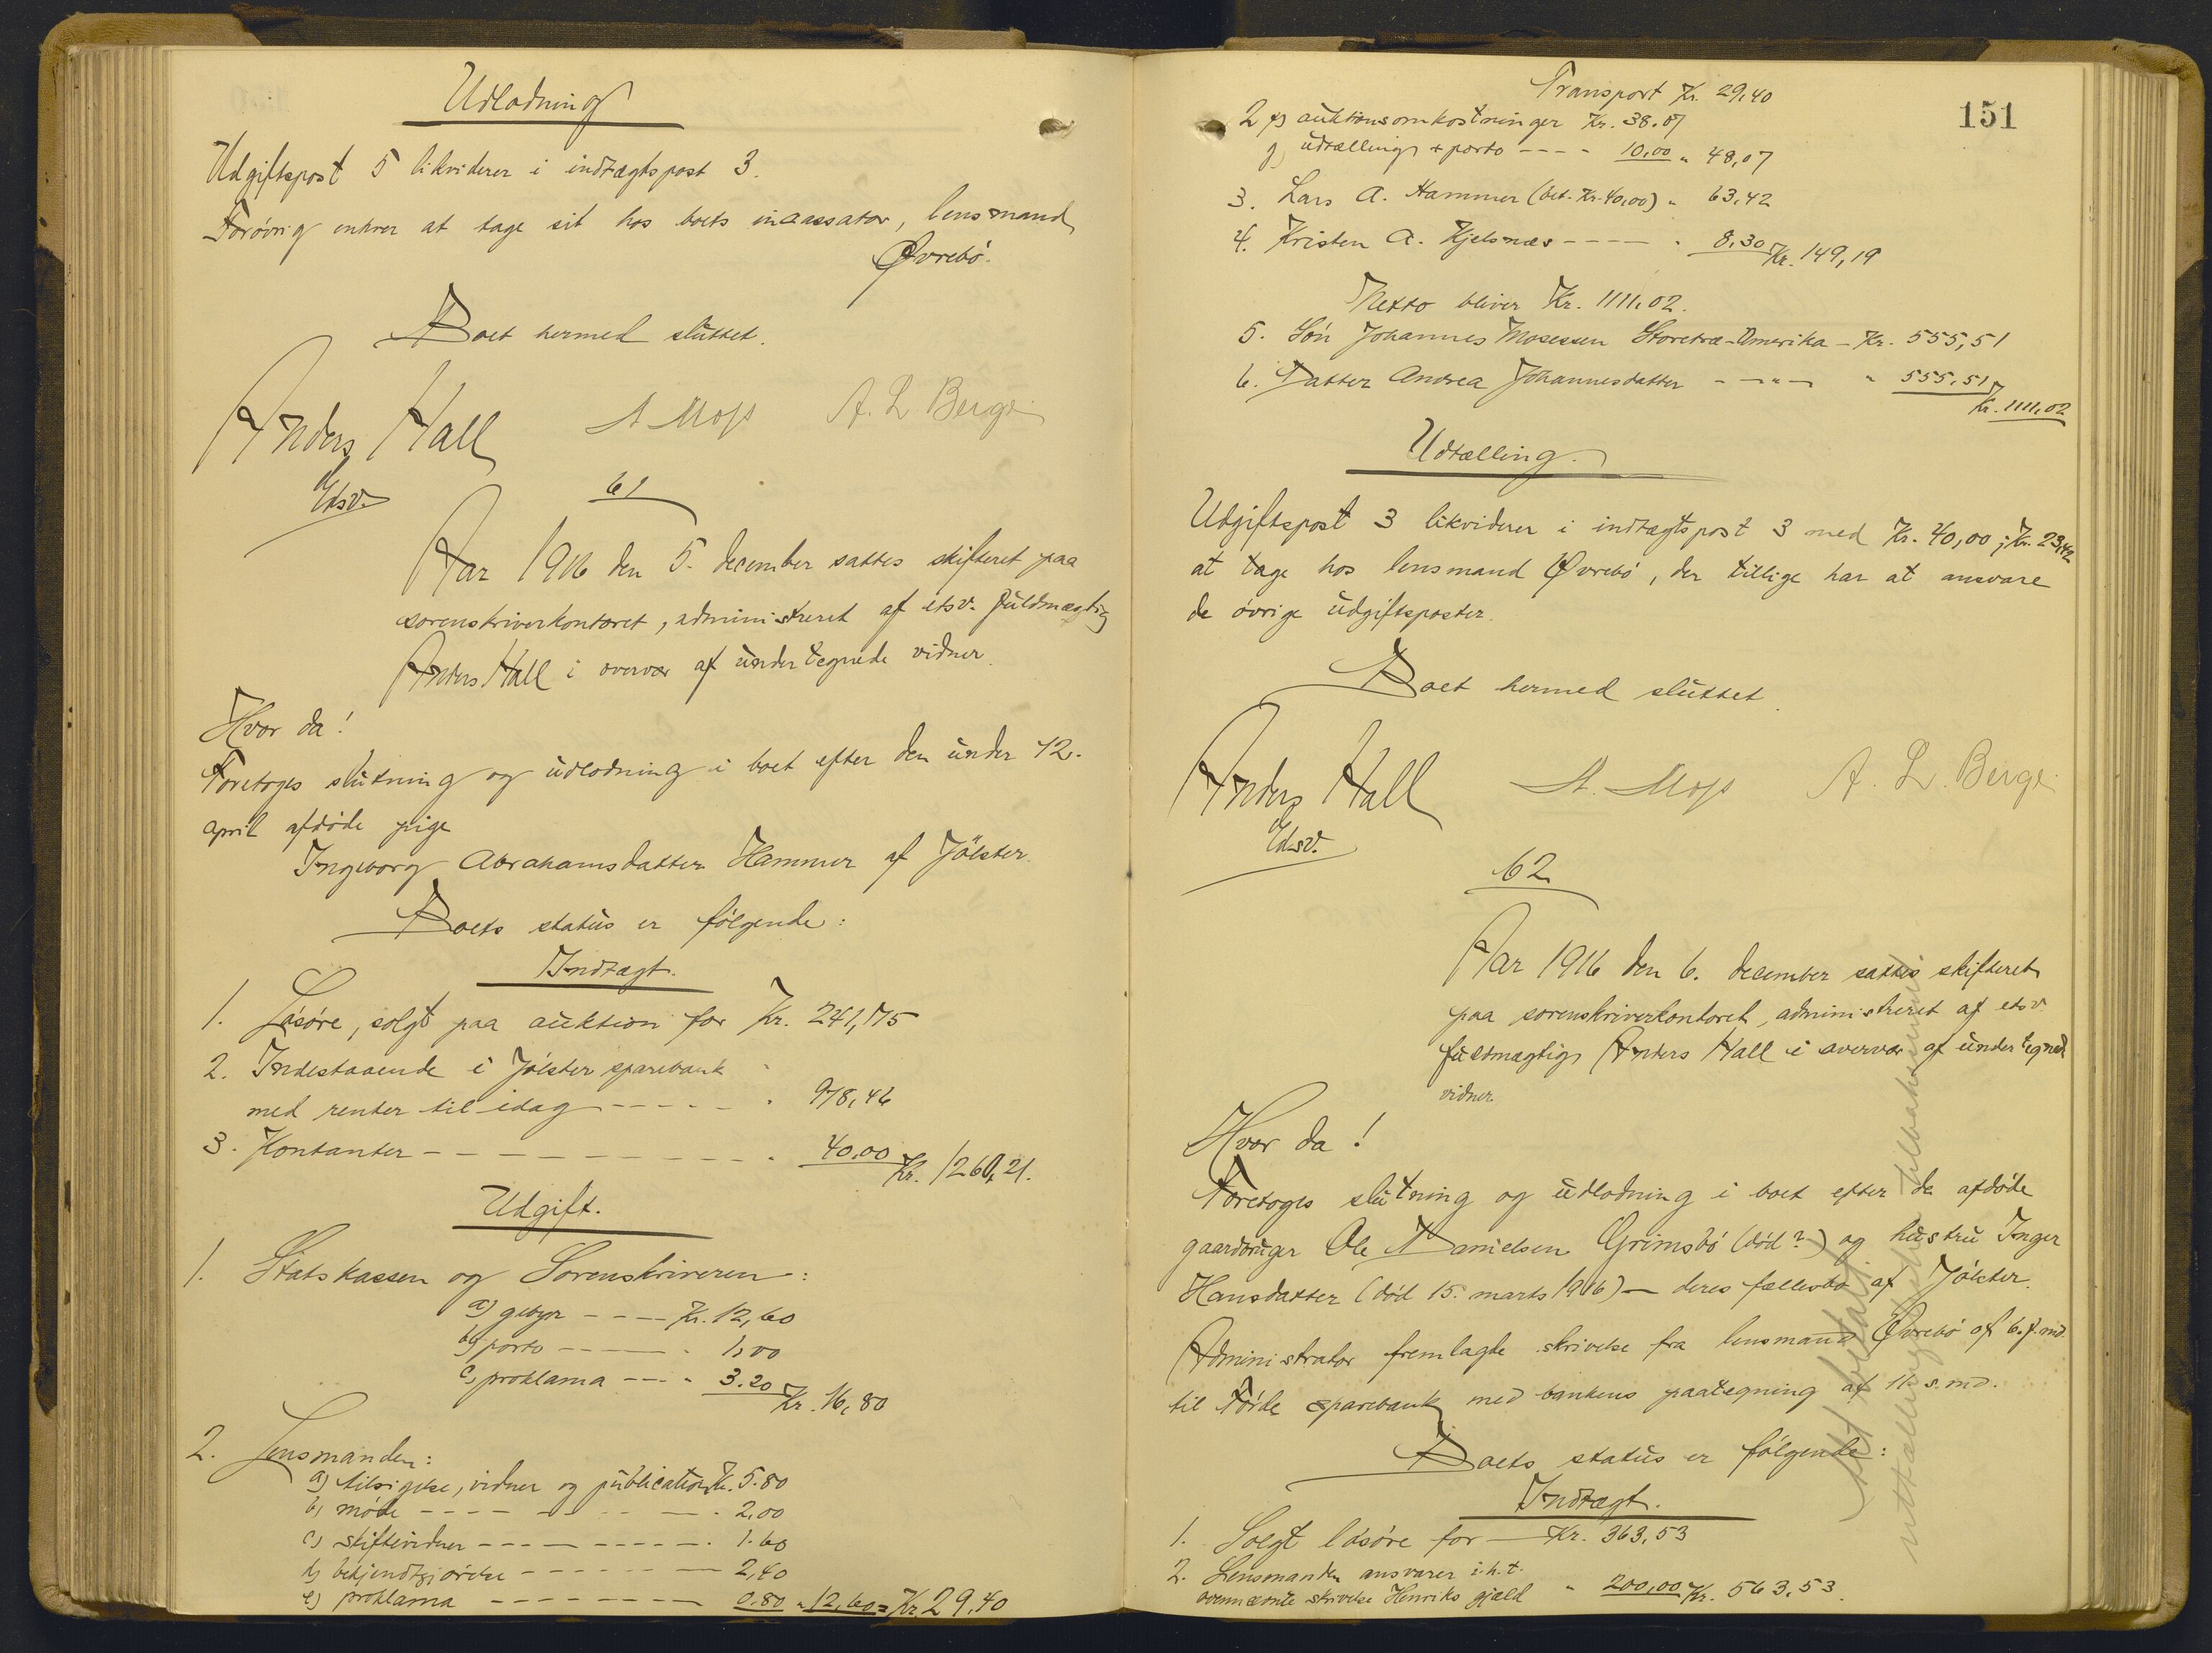 Udlodning
Udgiftspost 5 likviderer i indtægtspost 3.
Forøvrig enhver at tage sit hos boets incassator, lensmand
Øvrebö.
Boet hermed sluttet.
Anders Hall A Moss A. L. Berge
Edsv.
61
Aar 1916 den 5. december sattes skifteret paa
sorenskriverkontoret, administreret af edsv. fuldmægtig
Anders Hall i overvær af undertegnede vidner.
Hvor da!
Foretoges slutning og udlodning i boet efter den under 12.
april afdöde pige
Ingeborg Abrahamsdatter Hammer af Jölster.
Boets status er fölgende:
Indtægt.
1. Lösöre, solgt paa auktion for Kr. 241,75
2. Indestaaende i Jölster sparebank
med renter til idag - - - - - " 978,46
3. Kontanter - - - - - - - - - " 40,00 Kr. 1260,21.
Udgift.
1. Statskassen og Sorenskriveren:
a) gebyr - - - - Kr. 12,60
b) porto - - - - - " 1,00
c) proklama - - - " 3.20 Kr. 16,80
2. Lensmanden:
a) tilsigelse, vidner og publication Kr. 5.80
b) möde - - - - - - - - - " 2,00
c) skiftevidner - - - - - - - - " 1.60
d) bekjendtgjörelse - - - - - - - 2,40
e) proklama - - - - - - - - 0.80 " 12,60 = Kr. 29,40
151
Transport Kr. 29,40
2 f) auktionsomkostninger Kr. 38.07
g) udtælling + porto - - - - 10,00 " 48,07
3. Lars A. Hammer (bet. Kr. 40,00) " 63,42
4. Kristen A. Kjelsnæs - - - - " 8,30 Kr. 149,19
Netto bliver Kr. 1111,02.
5. Sön Johannes Mosessen Storetræ - Amerika - Kr. 555,51
6. Datter Andrea Johannesdatter - - " - " 555,51
Kr. 1111,02
Udtælling.
Udgiftspost 3 likviderer i indtægtspost 3 med Kr. 40,00; Kr. 23,42
at tage hos lensmand Øvrebö, der tillige har at ansvare
de övrige udgiftsposter.
Boet hermed sluttet.
Anders Hall A. Moss A. L. Berge
Edsv.
62
Aar 1916 den 6. december sattes skifteret
paa sorenskriverkontoret, administreret af edsv.
fuldmægtig Anders Hall i overvær af undertegned
vidner.
Hvor da!
Foretoges slutning og udlodning i boet efter de afdöde
gaardbruger Ole Danielsen Grimsbö (död?) og hustru Inger
Hansdatter (död 15. marts 1916) - deres fællesbo af Jölster.
Administrator fremlagde skrivelse fra lensmand Øvrebö af 6. f. md.
til Förde sparebank med bankens paategning af 11. s. md.
Boets status er fölgende:
Indtægt.
1. Solgt lösöre for - Kr. 363,53
2. Lensmanden ansvarer i. h. t.
ovennævnte skrivelse Henriks gjæld " 200,00 Kr. 563.53.
Alt betalt